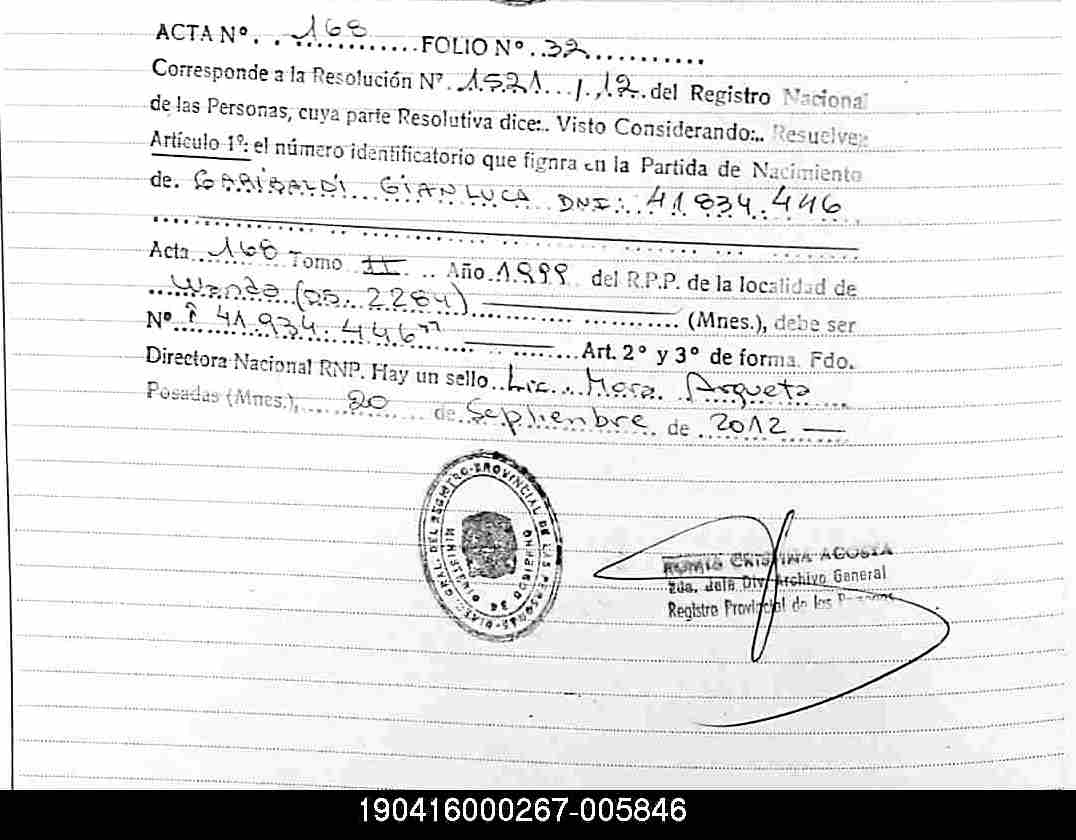 ACTA Nº. . .168............FOLIO Nº..32...........
Corresponde a la Resolución Nº .1521.../.,12..del Registro Nacional
de las Personas, cuya parte Resolutiva dice:.. Visto Considerando:.. Resuelve:
Artículo 1º: el número identificatorio que fignra en la Partida de Nacimiento
de. GARIBALDI GIANLUCA DNI: 41.834.446
Acta...168 Tomo II .. Año.1.999. del R.P.P. de la localidad de
...Wanda (OS. 2284) (Mnes.), debe ser
Nº...." 41.934.446" Art. 2º y 3º de forma. Fdo.
Directora Nacional RNP. Hay un sello..Lic... Mora. Argueta
Posadas (Mnes.), 20 de Septienbre de 2012 —
DIREC. GRAL. DEL REGISTRO PROVINCIAL DE LAS PERSONAS
MINISTERIO DE GOBIERNO
CRISTINA ACOSTA
2da. Jefe Div. Archivo General
Registro Provincial de las Personas
190416000267-005846